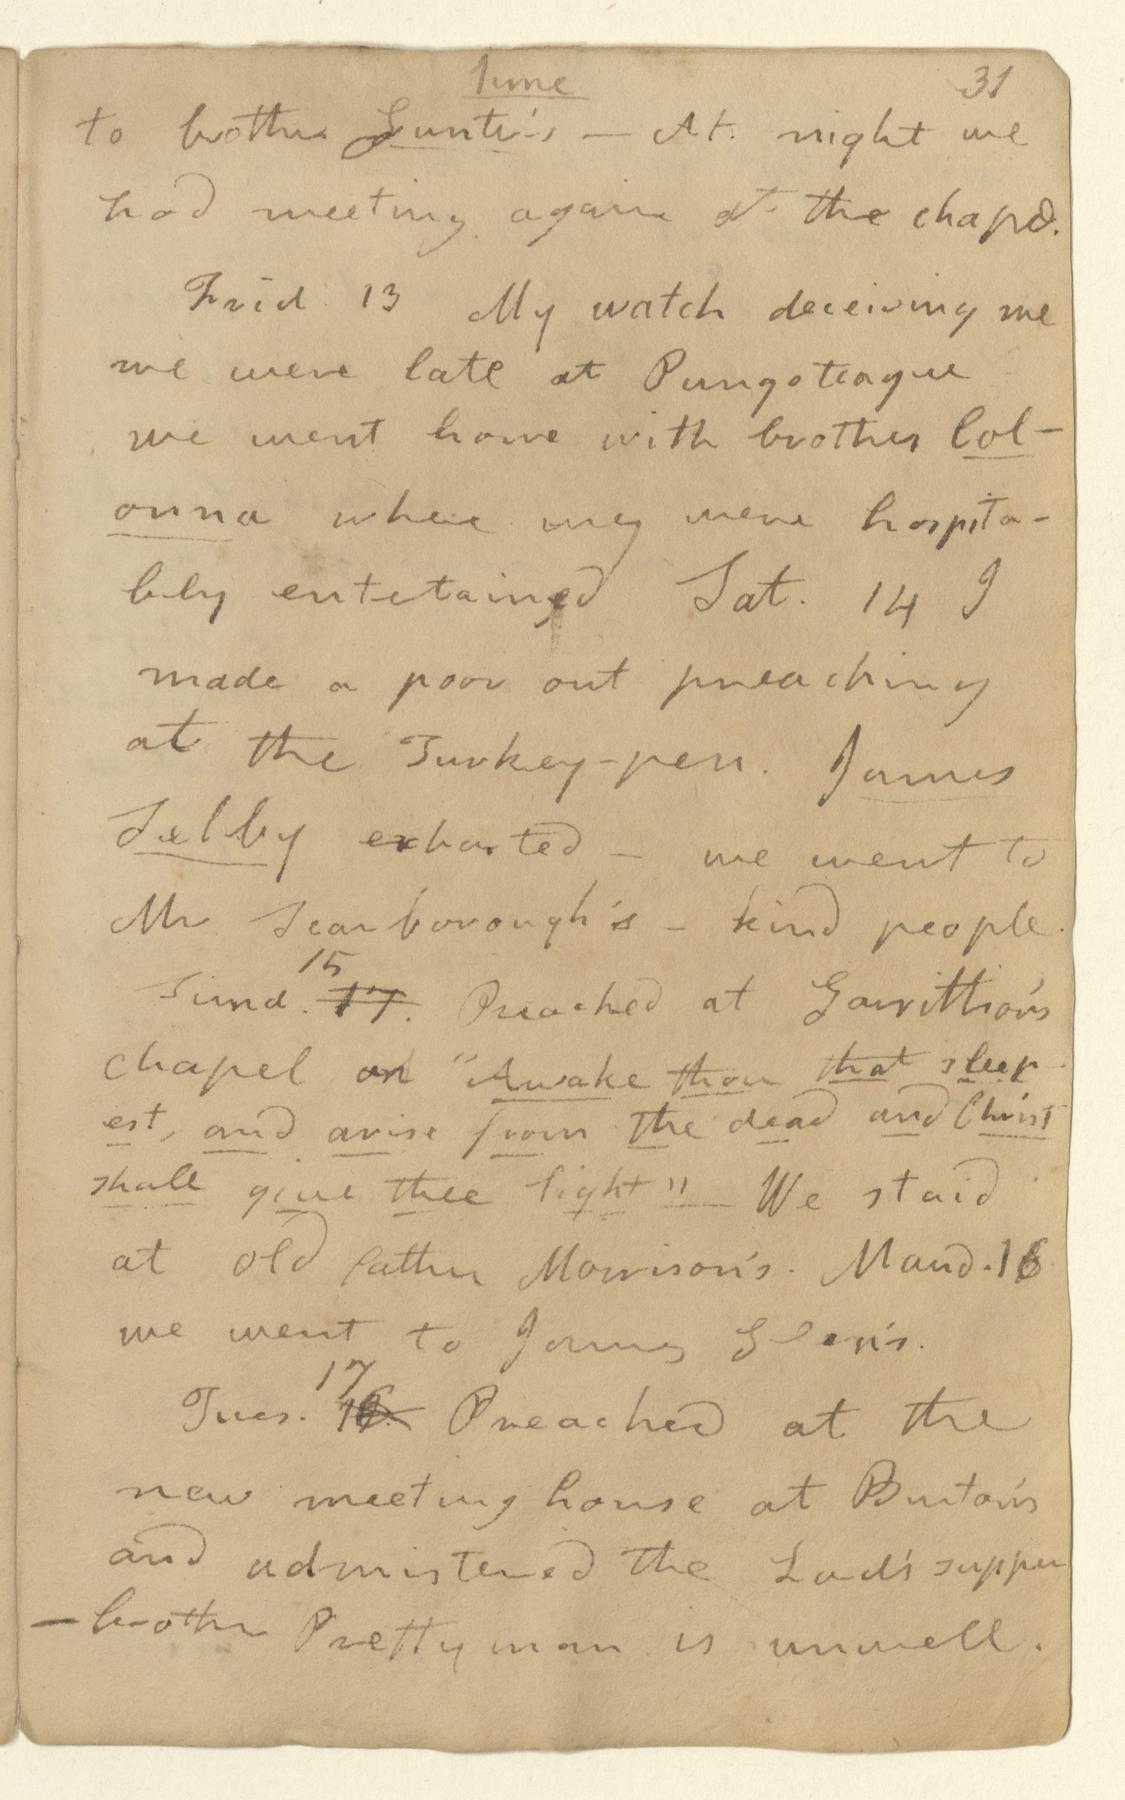 June 31
to brother Gunter's — At. night we
had meeting again at the chapel.
Frid. 13 My watch deceiving me
we were late at Pungoteague
we went home with brother Col-
onna where we were hospita-
bly entertained Sat. 14 I
made a poor out preaching
at the Turkey-pen. James
Selby exhorted — we went to
Mr Scarborough's — kind people.
Sund. 15 17. Preached at Garrittson's
chapel on "Awake thou that sleep-
est, and arise from the dead and Christ
shall give thee light" We staid
at old father Morrison's. Mond. 16
we went to James Glen's.
Tues. 17 16. Preached at the
new meeting house at Burton's
and admistered the Lord's supper
— brother Prettyman is unwell.